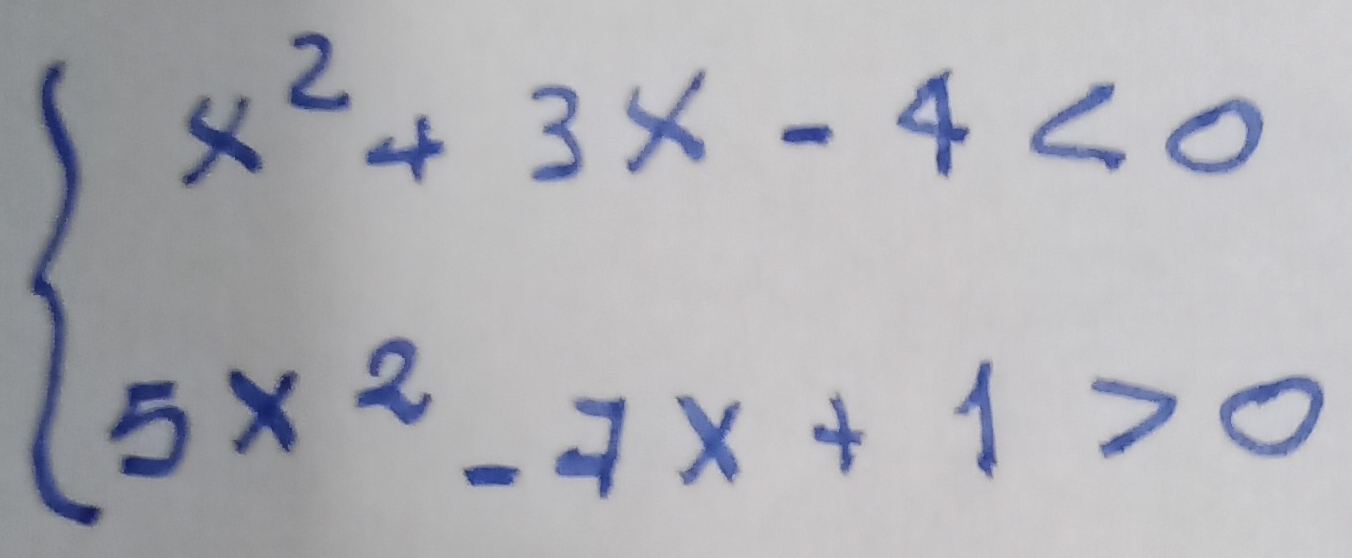 x² + 3x - 4 < 0
5x² - 7x + 1 > 0